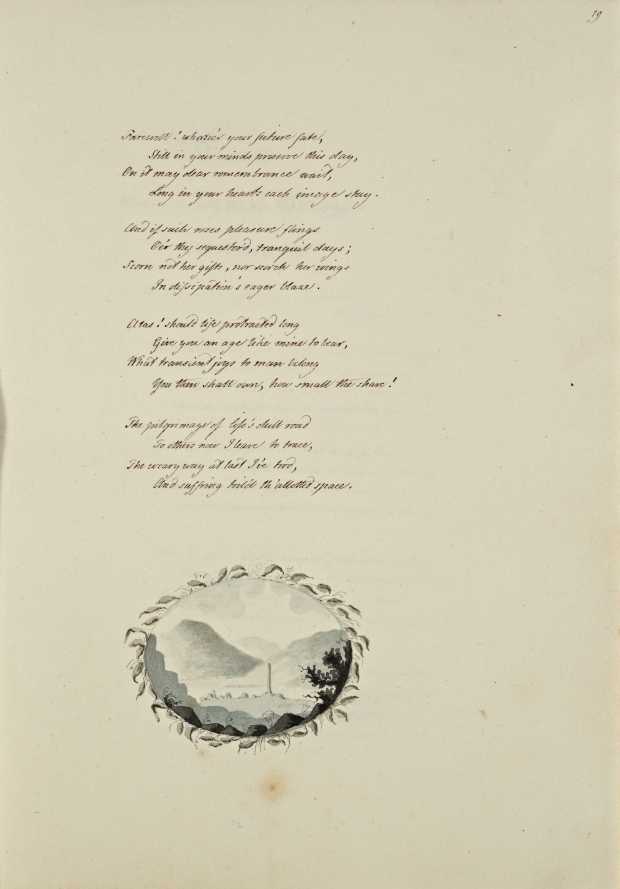 19
Farewell! whate'er your future fate,
Still in your minds preserve this day,
On it may dear remembrance wait,
Long in your hearts each image stay.
And if such roses pleasure flings
O'er thy sequester'd, tranquil days;
Scorn not her gifts, nor scorch her wings
In dissipation's eager blaze.
Alas! should life protracted long
Give you an age like mine to bear,
What transient joys to man belong
You then shall own, how small the share!
The pilgrimage of life's dull road
To others now I leave to trace,
The weary way at last I've trod,
And suff'ring toil'd th'allotted space.